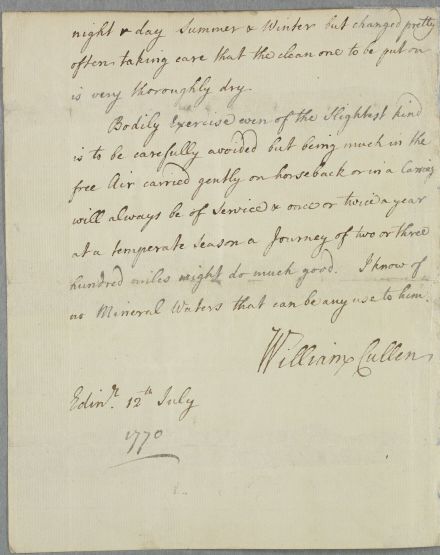 night & day Summer & Winter but changed pretty
often taking care that the clean one to be put on
is very thoroughly dry.
Bodily Exercise even of the Slightest kind
is to be carefully avoided but being much in the
free Air carried gently on horseback or in a Carriag
will always be of Service & once or twice a year
at a temperate Season a Journey of two or three
hundred miles might do much good. I know of
no Mineral Waters that can be any use to him.
William Cullen
Edinr. 12th July
1770